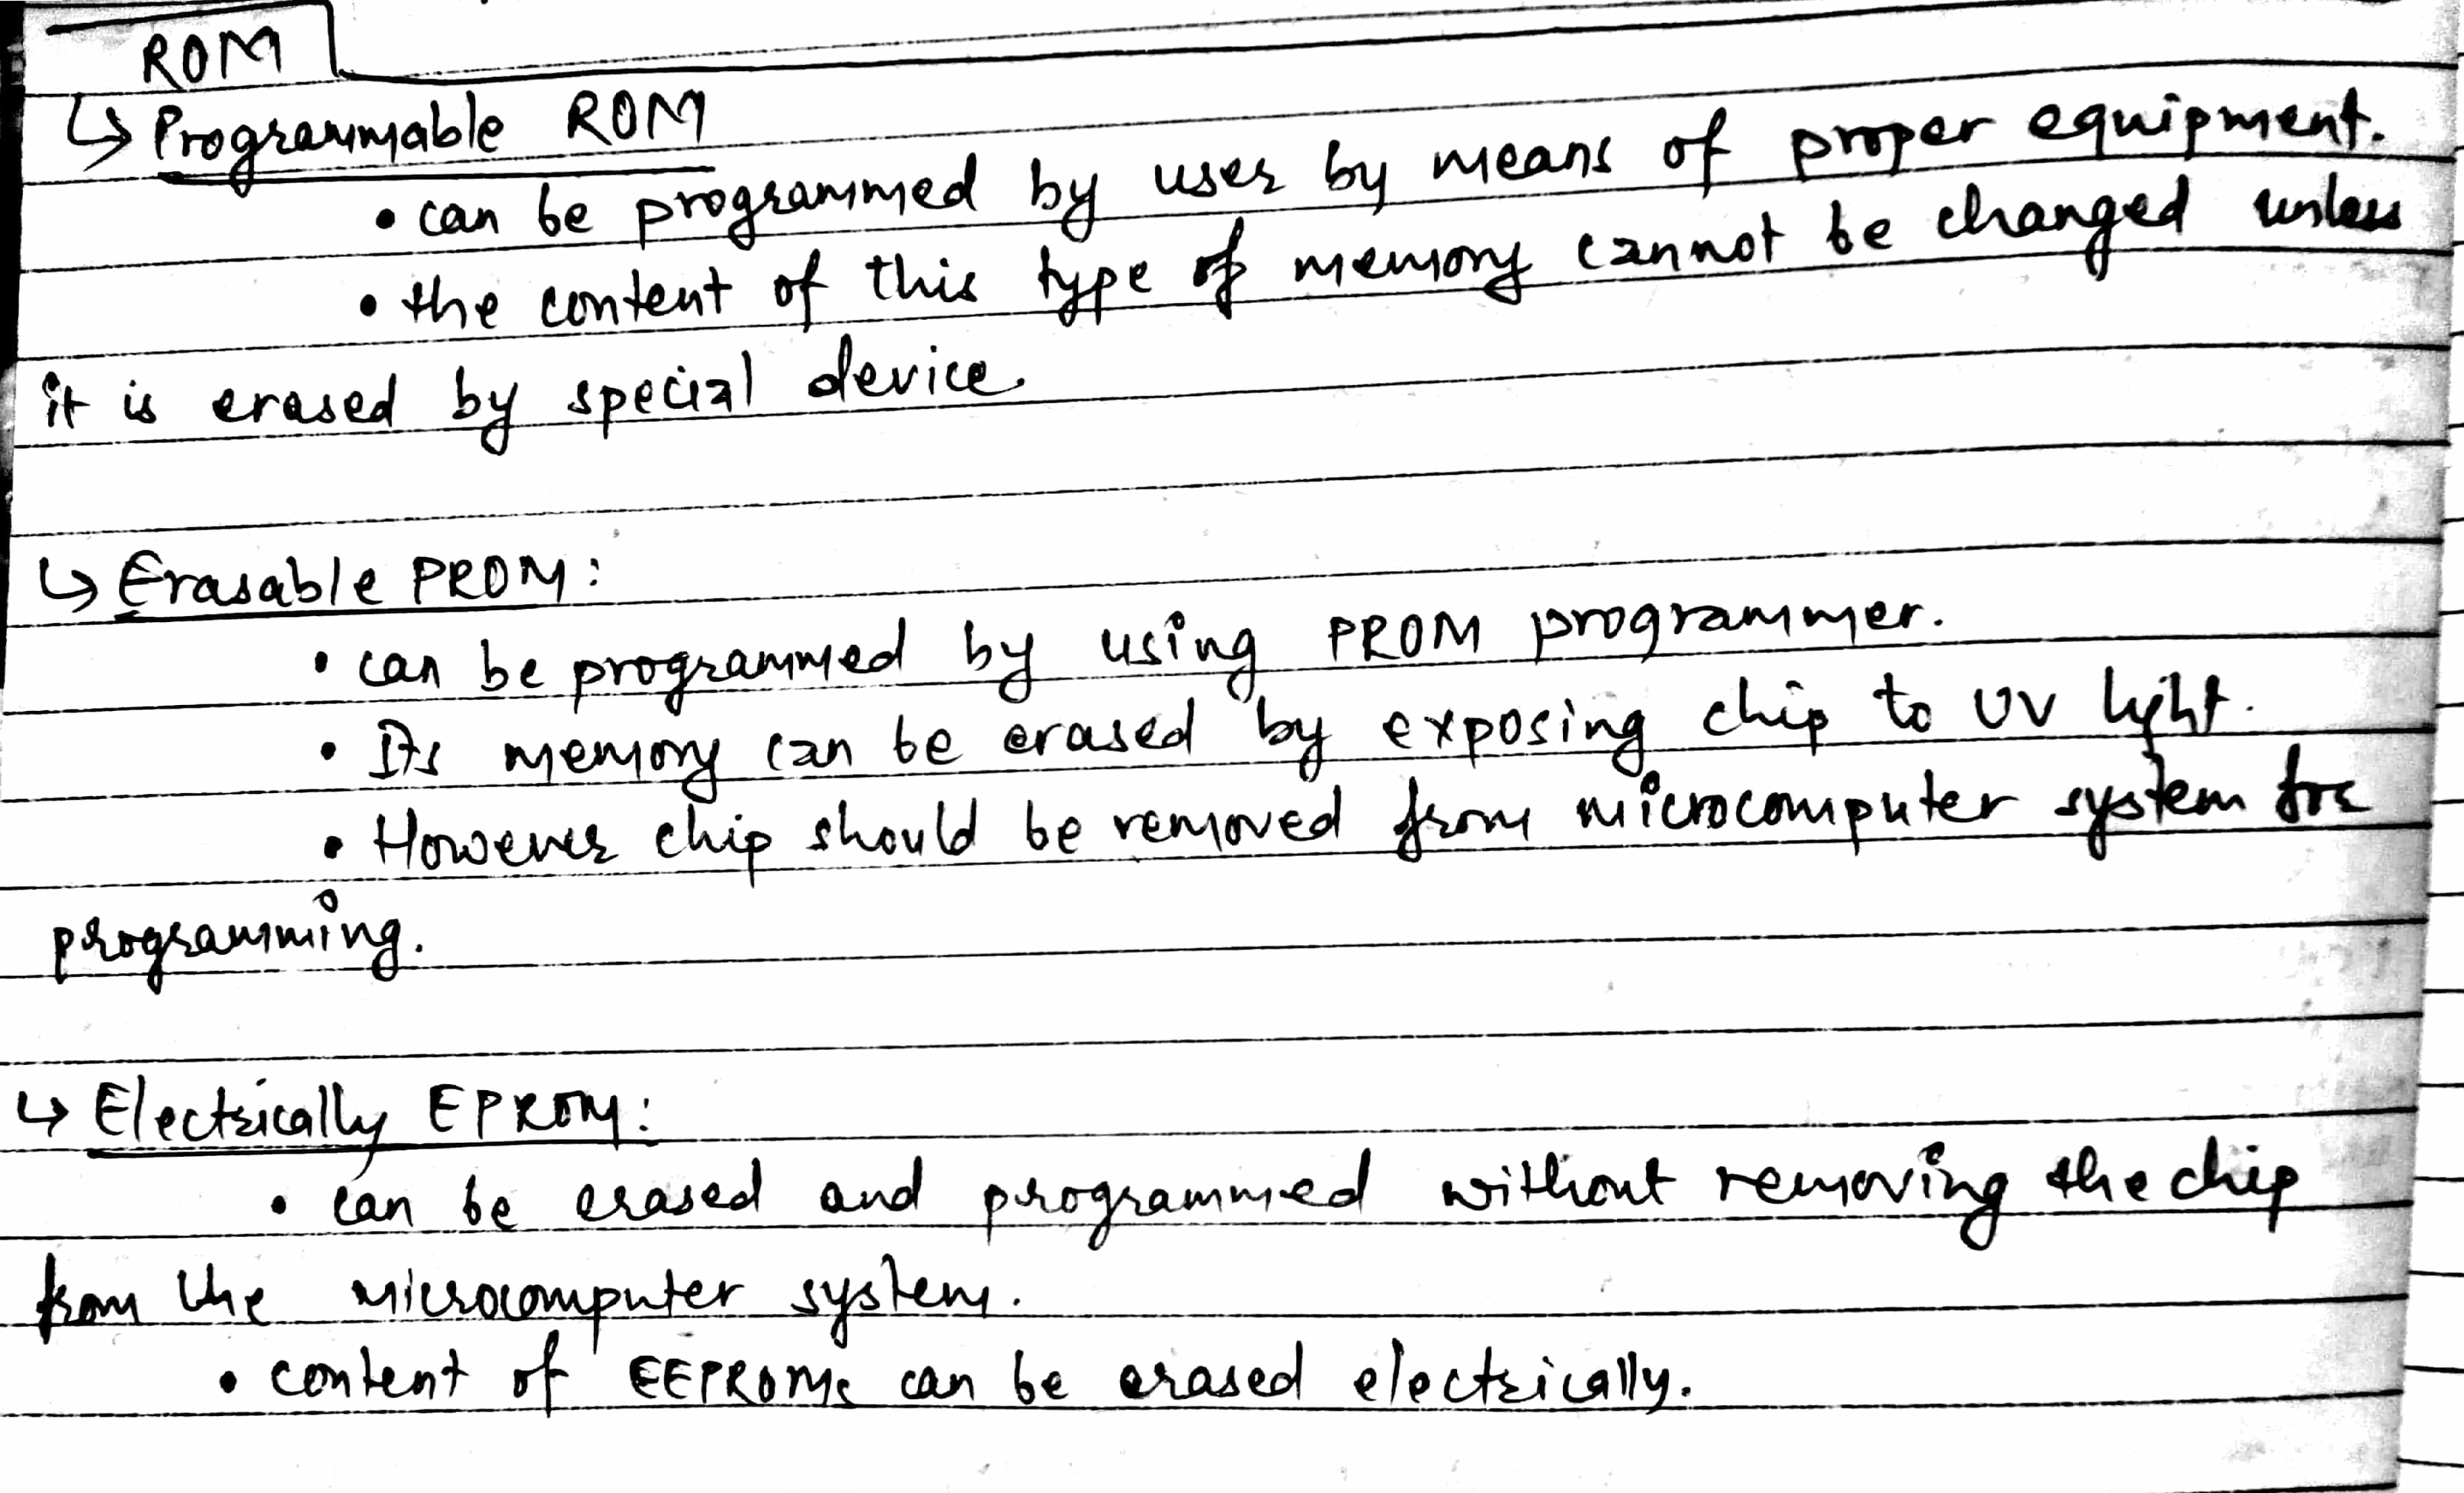 ROM
↳ Programmable ROM
• can be programmed by user by means of proper equipment.
• the content of this type of memory cannot be changed unless
it is erased by special device.
↳ Erasable PROM:
• can be programmed by using PROM programmer.
• Its memory can be erased by exposing chip to UV light.
• However chip should be removed from microcomputer system for
programming.
↳ Electrically EPROM:
• can be erased and programmed without removing the chip
from the microcomputer system.
• content of EEPROMs can be erased electrically.